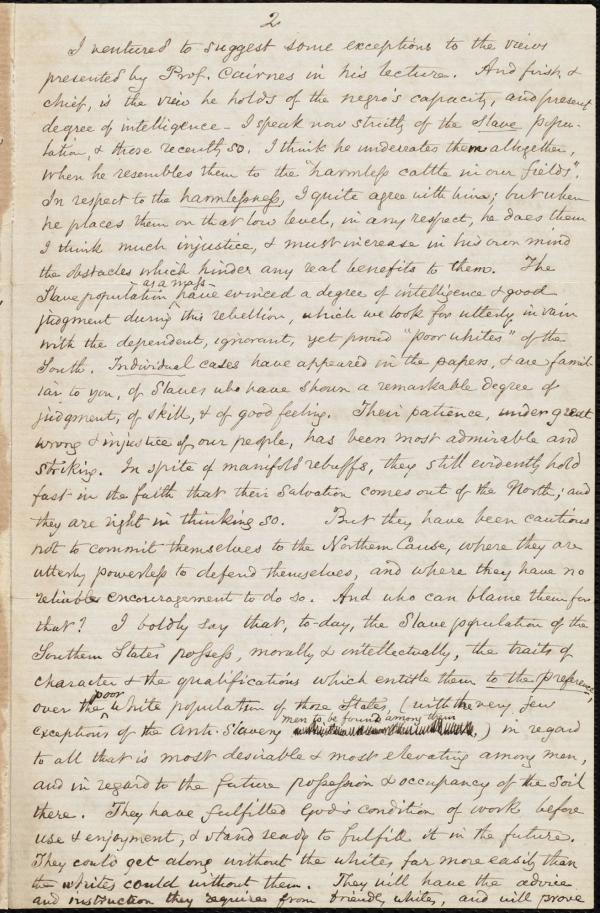 2
I ventured to suggest some exceptions to the views
presented by Prof. Cairnes in his lecture. And first, &
chief, is the view he holds of the negro's capacity, and present
degree of intelligence - I speak now strictly of the Slave popu-
lation, & those recently so. I think he underrates them altogether,
when he resembles them to the "harmless cattle in our fields".
In respect to the harmlessness, I quite agree with him; but when
he places them on that low level, in any respect, he does them
I think much injustice, & must increase in his own mind
the obstacles which hinder any real benefits to them. The
Slave population as a mass have evinced a degree of intelligence & good
judgment during this rebellion, which we look for utterly in vain
with the dependent, ignorant, yet proud "poor whites" of the
South. Individual cases have appeared in the papers, & are famil-
iar to you, of Slaves who have shown a remarkable degree of
judgment, of skill, & of good feeling. Their patience, under great
wrong & injustice of our people, has been most admirable and
striking. In spite of manifold rebuffs, they still evidently hold
fast in the faith that their Salvation comes out of the North; and
they are right in thinking so. But they have been cautious
not to commit themselves to the Northern Cause, where they are
utterly powerless to defend themselves, and where they have no
reliable encouragement to do so. And who can blame them for
that? I boldly say that, to-day, the Slave population of the
Southern States possess, morally & intellectually, the traits of
character & the qualifications which entitle them to the preference,
over the poor white population of those States, (with the very few
exceptions of the Anti-Slavery men to be found among them.) in regard
to all that is most desirable & most elevating among men,
and in regard to the future possession & occupancy of the Soil
there. They have fulfilled God's condition of work before
use & enjoyment, & stand ready to fulfill it in the future.
They could get along without the whites, far more easily than
the whites could without them. They will have the advice
and instruction they require from friendly whites, and will prove